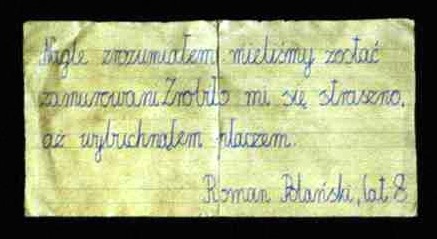 Nagle zrozumiałem mieliśmy zostać
zamurowani. Zrobiło mi się straszno,
aż wybuchnąłem płaczem.
Roman Polański, lat 8